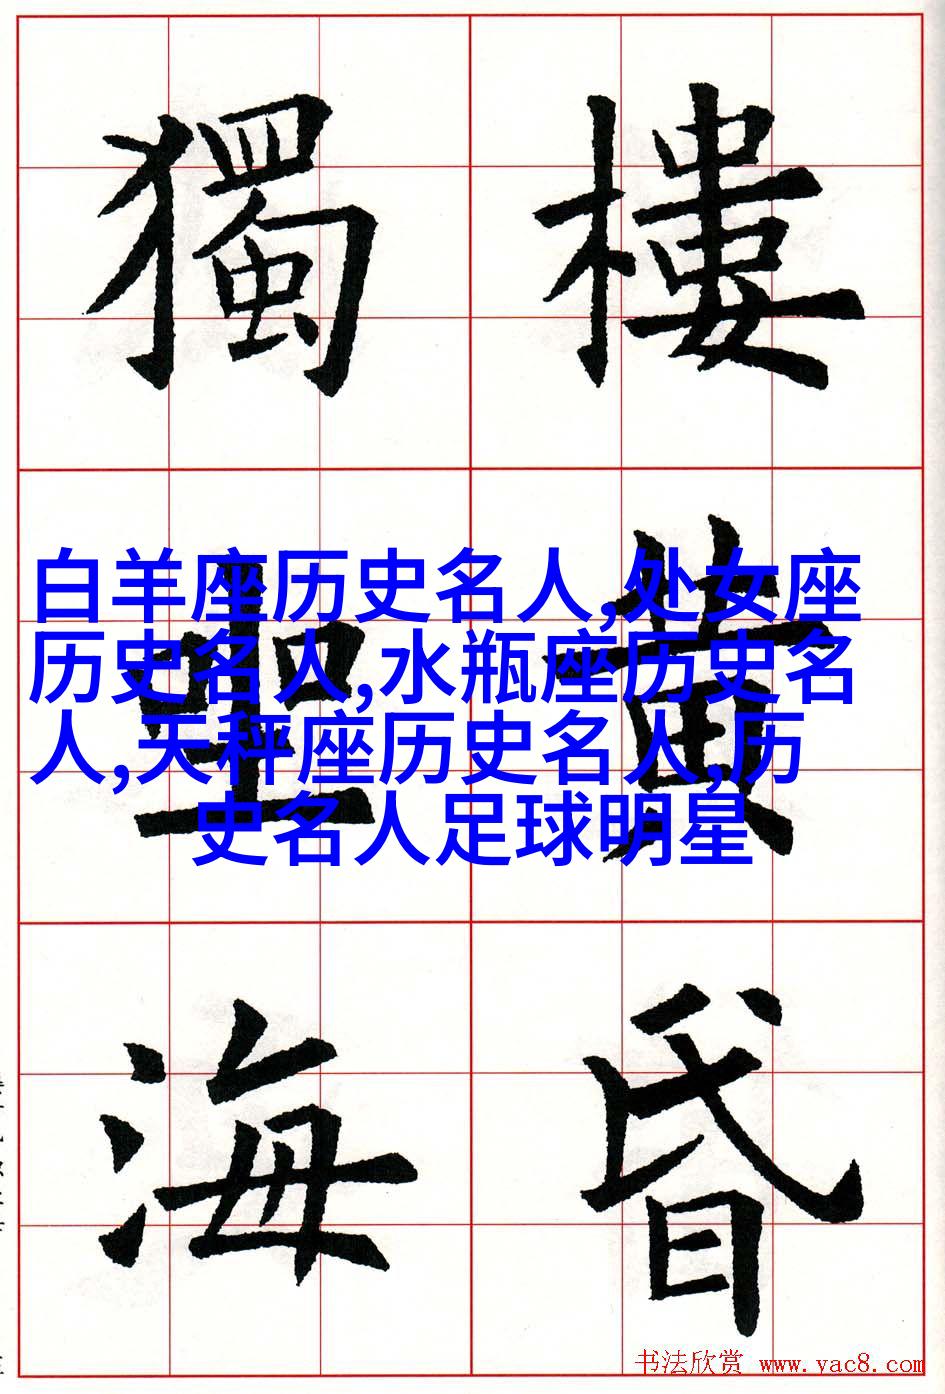 獨樓
聖黄
海昏
白羊座历史名人,处女座
历史名人,水瓶座历史名
人,天秤座历史名人,历
史名人足球明星
书法欣赏 www.yac8.com